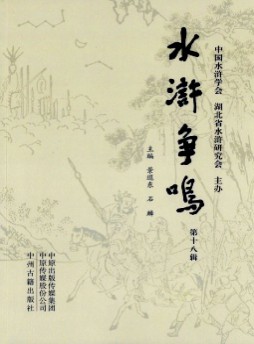 中国水浒学会 湖北省水浒研究会 主办
水浒争鸣
第十八辑
主编 景遐东 石麟
中原出版传媒集团
中原传媒股份公司
中州古籍出版社